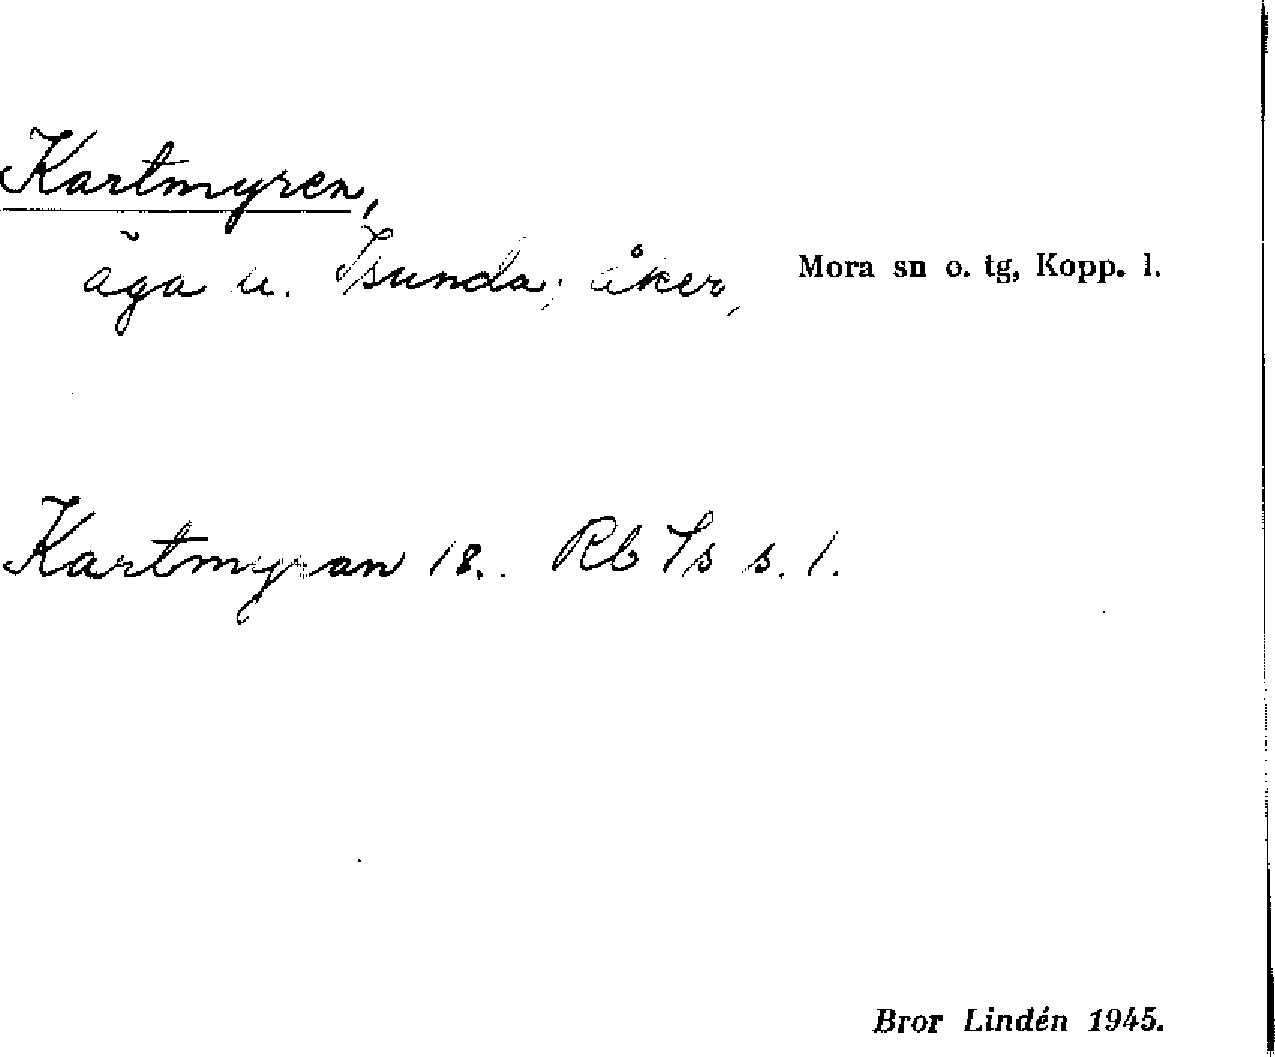 Kartmyren,
äga u. Isunda; åker, Mora sn o. tg, Kopp. l.
Kartmyran 18.. Rb Is s. 1.
Bror Lindén 1945.